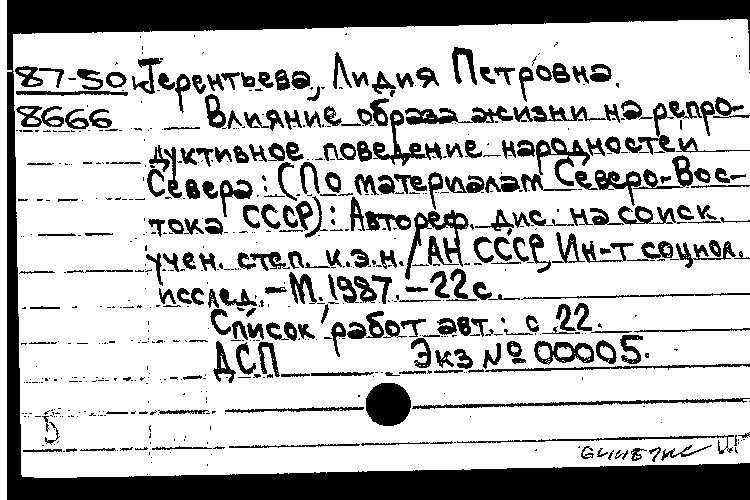 87-50 Терентьева, Лидия Петровна.
8666 Влияние образа жизни на репро-
дуктивное поведение народностей
Севера: (По материалам Северо-Вос-
тока СССР): Автореф. дис. на соиск.
учен. степ. к.э.н. / АН СССР, Ин-т социол.
исслед. - М. 1987. - 22 с.
Список работ авт.: с. 22.
ДСП Экз № 00005.
Б